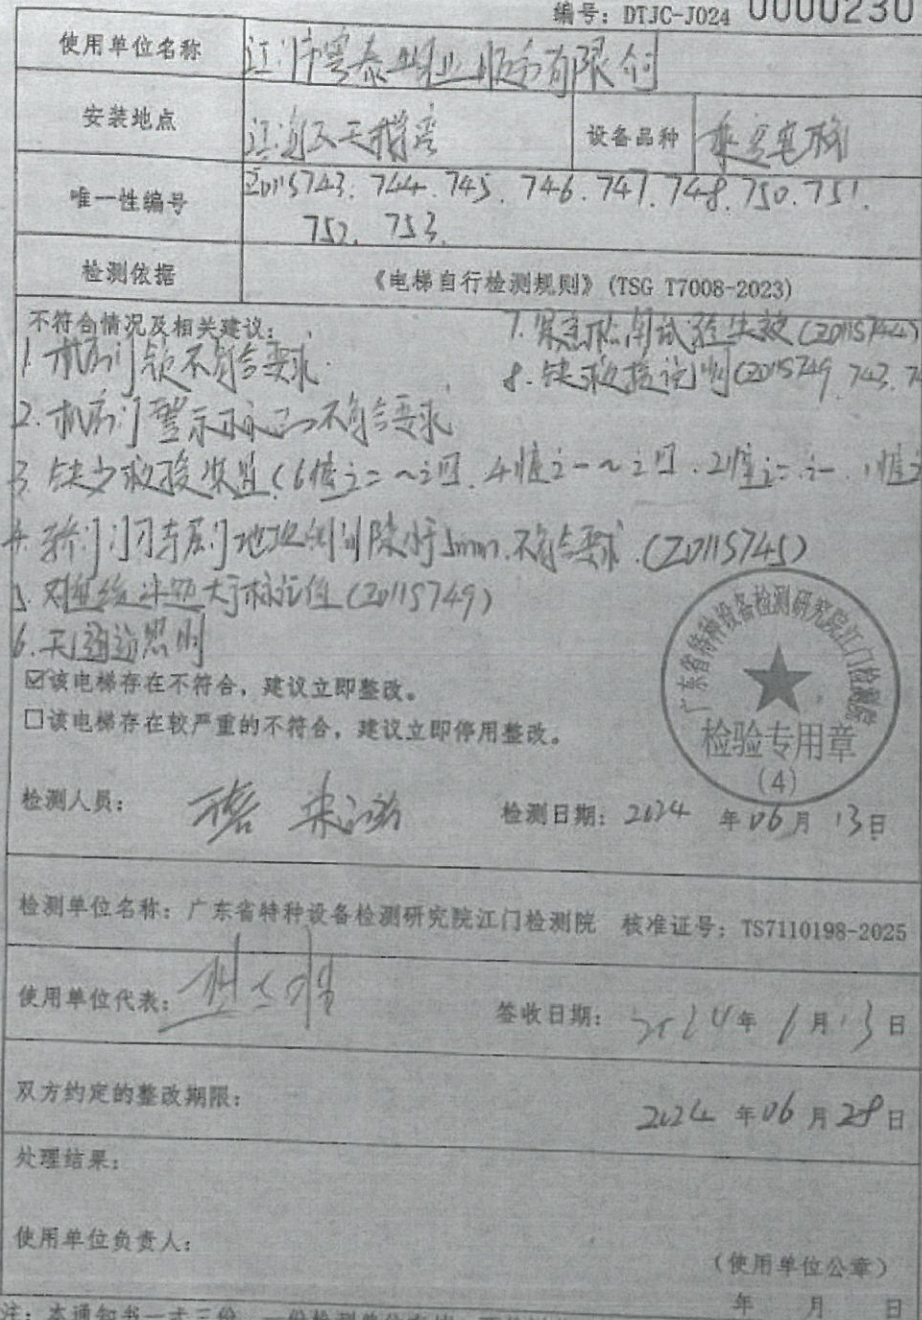 编号：DTJC-J024 0000230
使用单位名称 江门市粤泰物业服务有限公司
安装地点 江海区天鹅湾 设备品种 乘客电梯
唯一性编号 Z0115743. 744. 745. 746. 747. 748. 750. 751.
752. 753.
检测依据 《电梯自行检测规则》(TSG T7008-2023)
不符合情况及相关建议：
1. 机房门锁不符合要求.
2. 机房门警示标志不符合要求
3. 缺少救援装置(6幢
4. 轿门门刀与层门地坎间隙小于5mm.不符合要求.(Z0115745)
5. 大于标准值(Z0115749)
6. 照明
7. 试验失效(Z0115744)
8. 缺救援说明(Z0115749. 743. 7
☑该电梯存在不符合，建议立即整改。
☐该电梯存在较严重的不符合，建议立即停用整改。
广东省特种设备检测研究院江门检测院
检验专用章
(4)
检测人员： 检测日期：2024 年 06 月 13 日
检测单位名称：广东省特种设备检测研究院江门检测院 核准证号：TS7110198-2025
使用单位代表： 签收日期：2024 年 6 月 13 日
双方约定的整改期限：
2024 年 06 月 28 日
处理结果：
使用单位负责人：
(使用单位公章)
年 月 日
注：本通知书一式三份，一份检测单位存